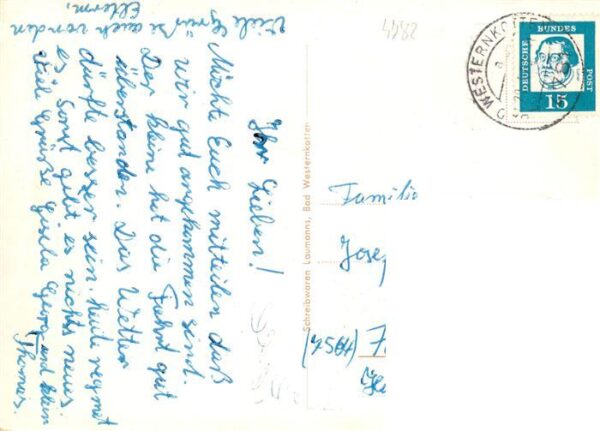 Ihr Lieben!
Möchte Euch mitteilen daß
wir gut angekommen sind.
Der kleine hat die Fahrt gut
überstanden. Das Wetter
dürfte besser sein. Heute regnet
es. Sonst gibt es nichts neues
Viele Grüße Gisela Georg und klein
Thomas.
Viele Grüße auch von den
Eltern.
2844
WESTERNKOTTEN
DEUTSCHE BUNDES POST
15
Schreibwaren Laumanns, Bad Westernkotten
Familie
Jose